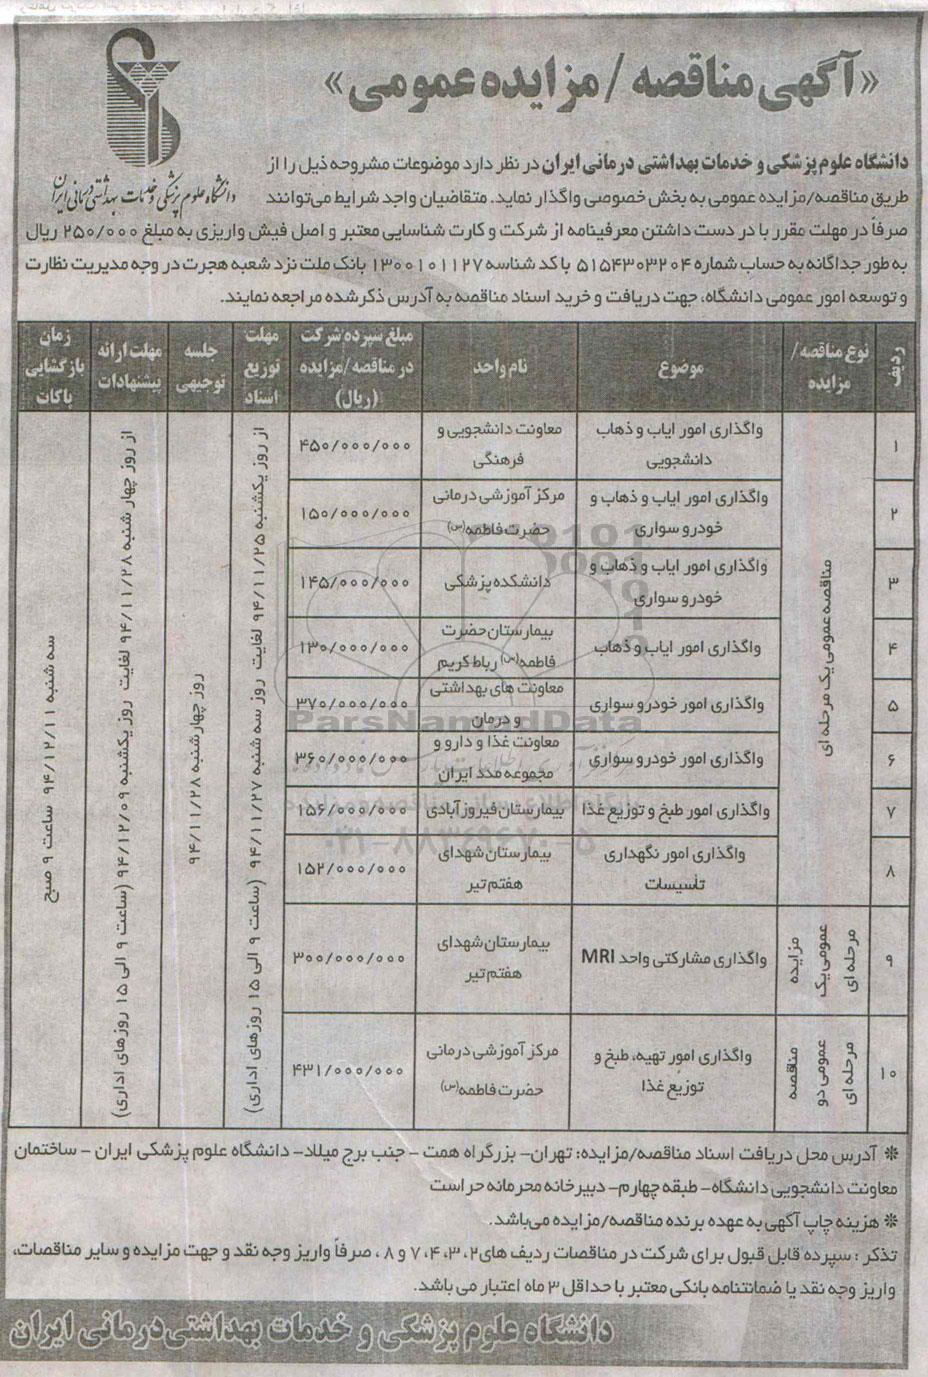 «آگهی مناقصه / مزایده عمومی»
دانشگاه علوم پزشکی و خدمات بهداشتی درمانی ایران
دانشگاه علوم پزشکی و خدمات بهداشتی درمانی ایران در نظر دارد موضوعات مشروحه ذیل را از
طریق مناقصه/مزایده عمومی به بخش خصوصی واگذار نماید. متقاضیان واجد شرایط می‌توانند
صرفاً در مهلت مقرر با در دست داشتن معرفینامه از شرکت و کارت شناسایی معتبر و اصل فیش واریزی به مبلغ ۲۵۰/۰۰۰ ریال
به طور جداگانه به حساب شماره ۵۱۵۴۳۰۳۲۰۴ با کد شناسه ۱۳۰۰۱۰۱۱۲۷ بانک ملت نزد شعبه هجرت در وجه مدیریت نظارت
و توسعه امور عمومی دانشگاه، جهت دریافت و خرید اسناد مناقصه به آدرس ذکر شده مراجعه نمایند.
ردیف
نوع مناقصه/
مزایده
موضوع
نام واحد
مبلغ سپرده شرکت
در مناقصه /مزایده
(ریال)
مهلت
توزیع
اسناد
جلسه
توجیهی
مهلت ارائه
پیشنهادات
زمان
بازگشایی
پاکات
۱
واگذاری امور ایاب و ذهاب
دانشجویی
معاونت دانشجویی و
فرهنگی
۴۵۰/۰۰۰/۰۰۰
۲
واگذاری امور ایاب و ذهاب و
خودرو سواری
مرکز آموزشی درمانی
حضرت فاطمه(س)
۱۵۰/۰۰۰/۰۰۰
۳
واگذاری امور ایاب و ذهاب و
خودرو سواری
دانشکده پزشکی
۱۴۵/۰۰۰/۰۰۰
۴
واگذاری امور ایاب و ذهاب
بیمارستان حضرت
فاطمه(س) رباط کریم
۱۳۰/۰۰۰/۰۰۰
۵
واگذاری امور خودرو سواری
معاونت های بهداشتی
و درمان
۳۷۰/۰۰۰/۰۰۰
۶
واگذاری امور خودرو سواری
معاونت غذا و دارو و
مجموعه مدد ایران
۳۶۰/۰۰۰/۰۰۰
۷
واگذاری امور طبخ و توزیع غذا
بیمارستان فیروزآبادی
۱۵۶/۰۰۰/۰۰۰
۸
واگذاری امور نگهداری
تأسیسات
بیمارستان شهدای
هفتم تیر
۱۵۲/۰۰۰/۰۰۰
مناقصه عمومی یک مرحله ای
۹
مزایده
عمومی یک
مرحله ای
واگذاری مشارکتی واحد MRI
بیمارستان شهدای
هفتم تیر
۳۰۰/۰۰۰/۰۰۰
۱۰
مناقصه
عمومی دو
مرحله ای
واگذاری امور تهیه، طبخ و
توزیع غذا
مرکز آموزشی درمانی
حضرت فاطمه(س)
۴۳۱/۰۰۰/۰۰۰
از روز یکشنبه ۹۴/۱۱/۲۵ لغایت روز سه شنبه ۹۴/۱۱/۲۷ (ساعت ۹ الی ۱۵ روزهای اداری)
روز چهارشنبه ۹۴/۱۱/۲۸
از روز چهارشنبه ۹۴/۱۱/۲۸ لغایت روز یکشنبه ۹۴/۱۲/۰۹ (ساعت ۹ الی ۱۵ روزهای اداری)
سه شنبه ۹۴/۱۲/۱۱ ساعت ۹ صبح
ParsNamadData
۰۲۱-۸۸۳۴۹۶۷۰-۵
* آدرس محل دریافت اسناد مناقصه/مزایده: تهران- بزرگراه همت - جنب برج میلاد- دانشگاه علوم پزشکی ایران - ساختمان
معاونت دانشجویی دانشگاه- طبقه چهارم- دبیرخانه محرمانه حراست
* هزینه چاپ آگهی به عهده برنده مناقصه/مزایده می‌باشد.
تذکر : سپرده قابل قبول برای شرکت در مناقصات ردیف های ۲، ۳، ۴، ۷ و ۸ ، صرفاً واریز وجه نقد و جهت مزایده و سایر مناقصات،
واریز وجه نقد یا ضمانتنامه بانکی معتبر با حداقل ۳ ماه اعتبار می باشد.
دانشگاه علوم پزشکی و خدمات بهداشتی درمانی ایران